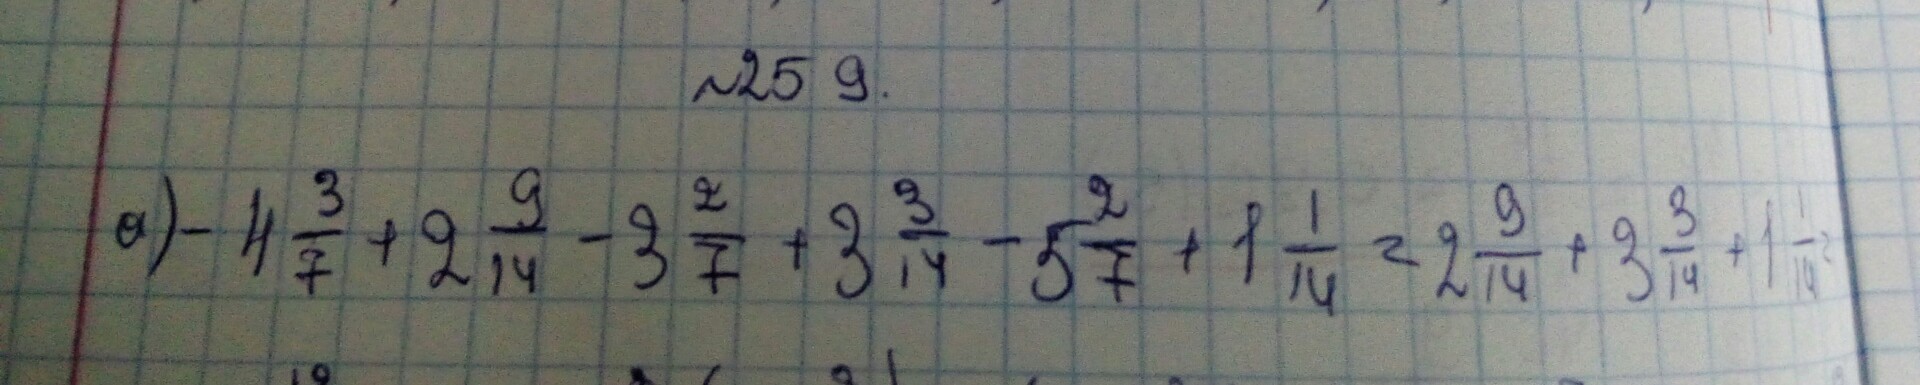 №259.
а) - 4 3/7 + 2 9/14 - 3 2/7 + 3 3/14 - 5 2/7 + 1 1/14 = 2 9/14 + 3 3/14 + 1 1/14 =